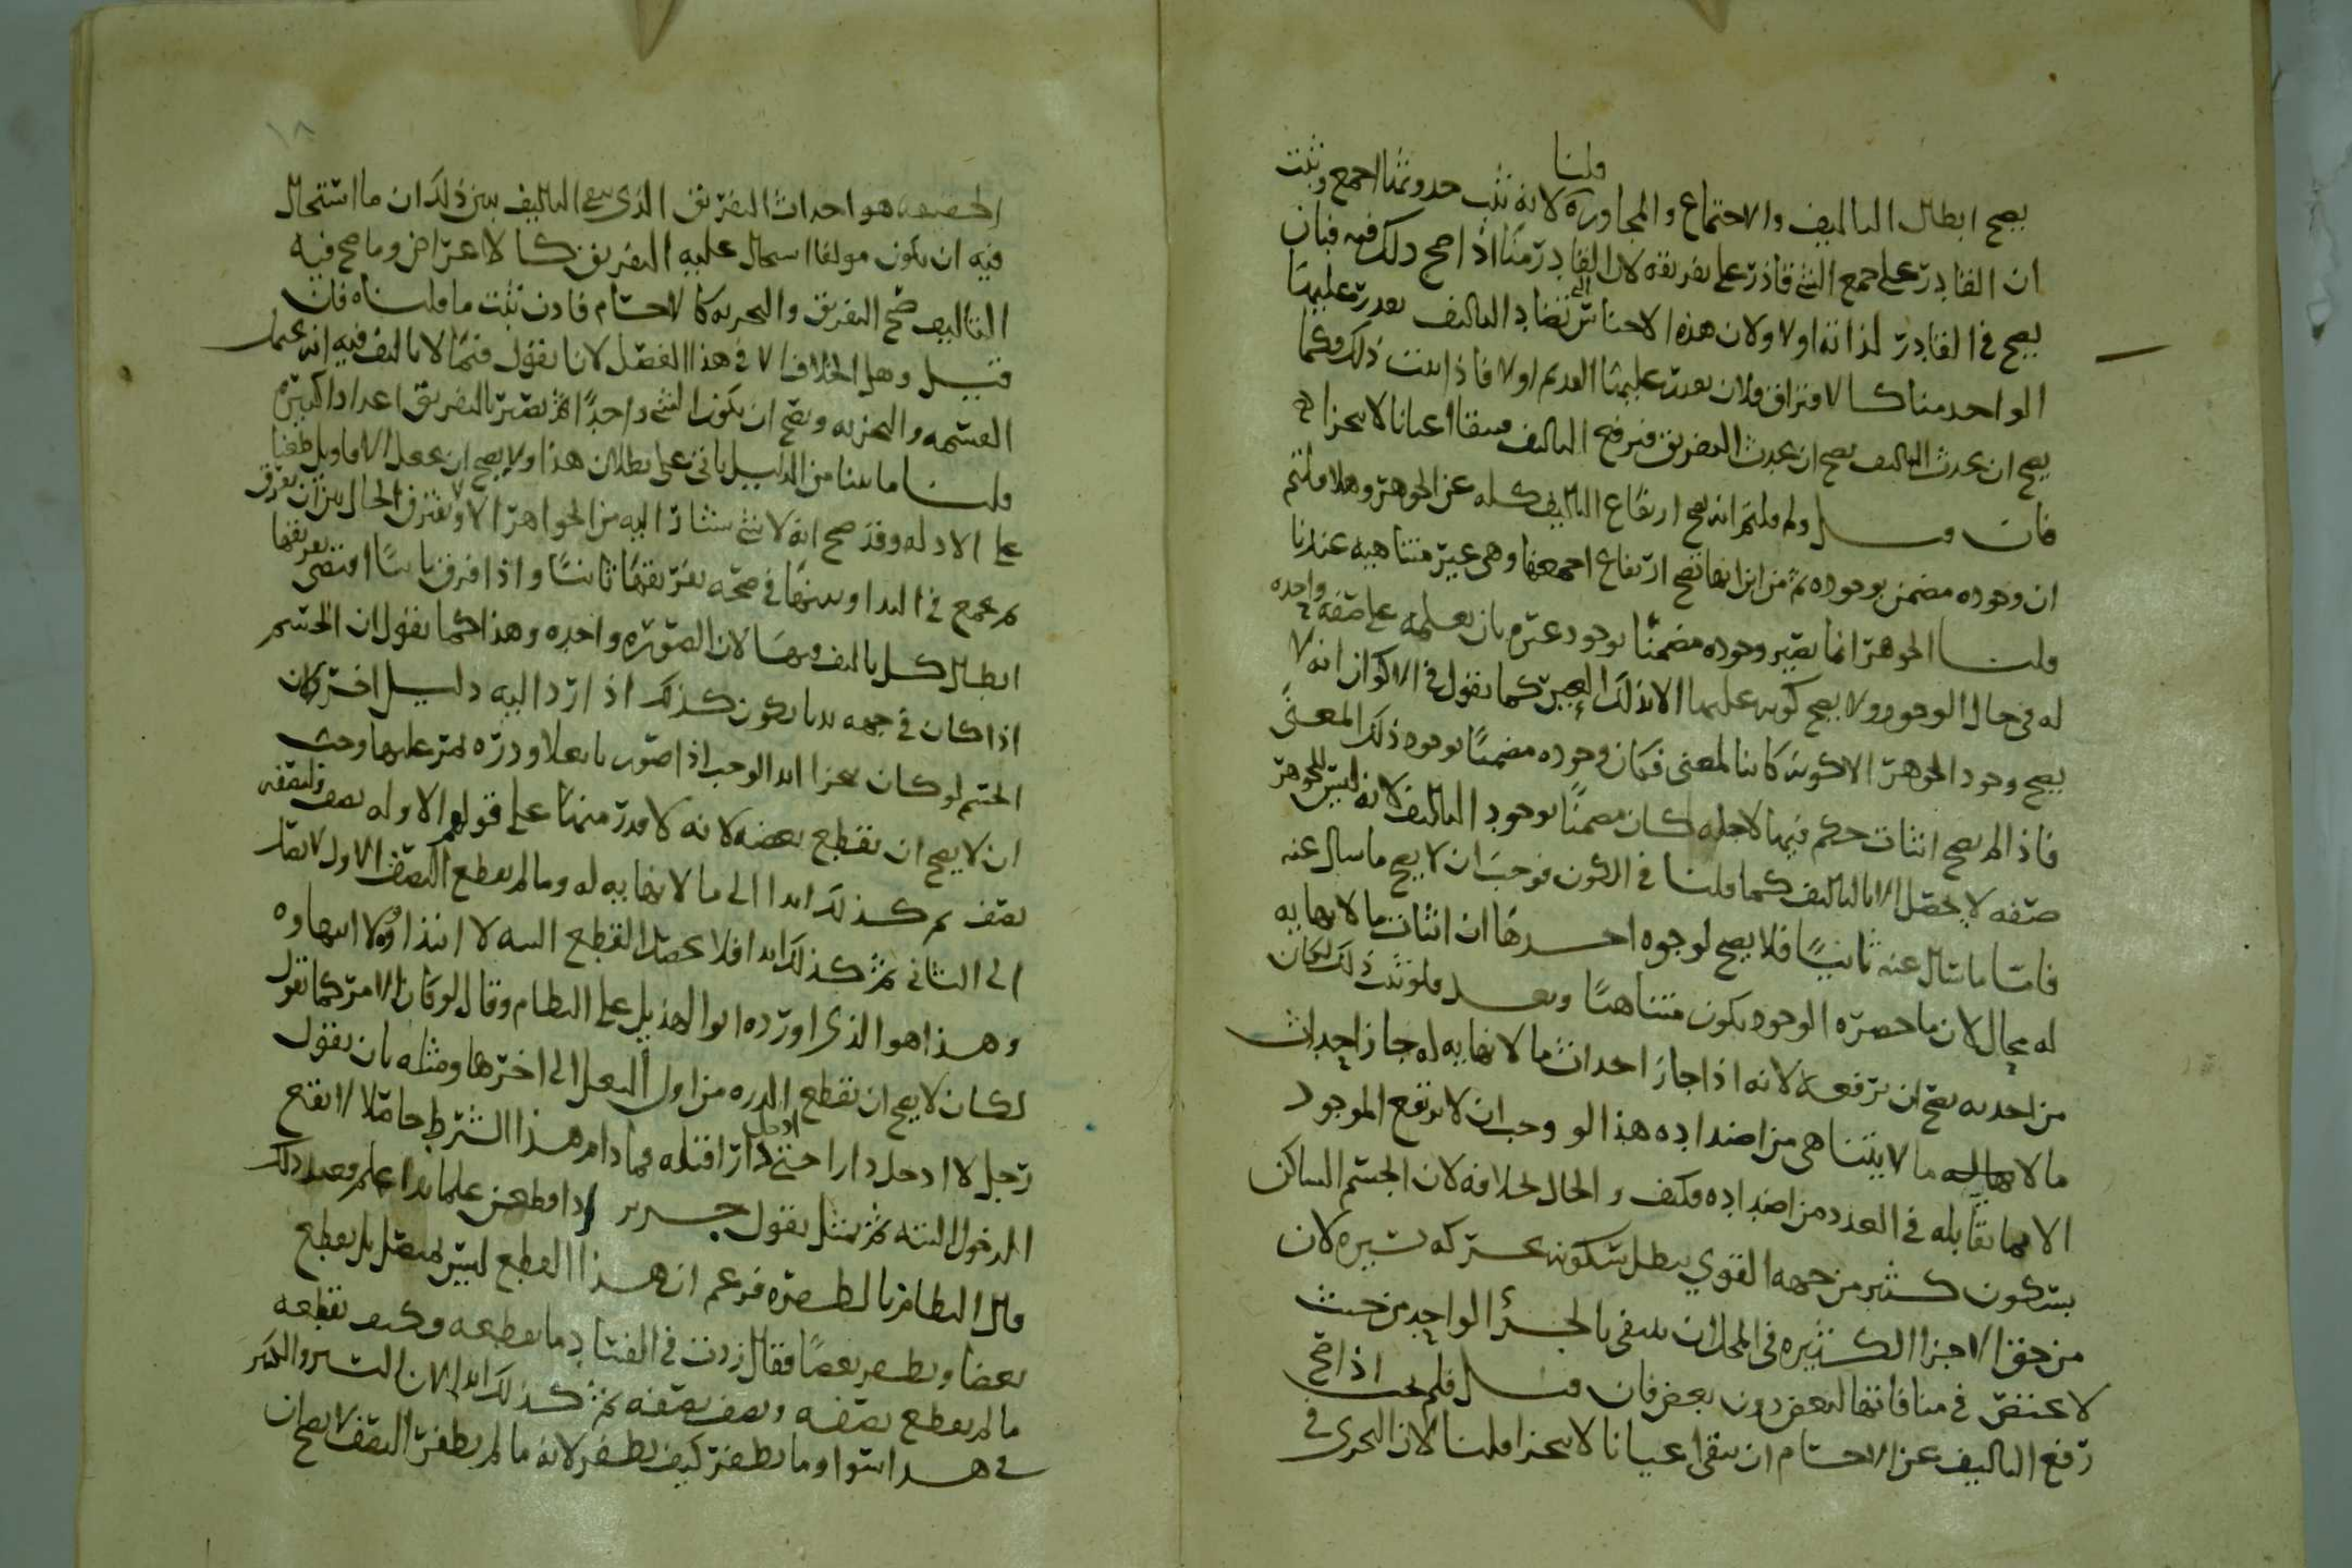 قلنا
يصح ابطال التاليف والاجتماع والمجاورة لانه يثبت حدوثها اجمع وثبت
ان القادر على جمع الشي قادر على تفريقه لان القادر منا اذا صح ذلك فيه فبان
يصح في القادر لذاته اولا ولان هذه الاجناس التي تضاد التاليف يقدر عليها
الواحد منا كالافتراق فلان يقدر عليها القديم اولا فاذا ثبت ذلك فكما
يصح ان يحدث التاليف يصح ان يحدث التفريق فيرفع التاليف فيبقا اعيانا لا يتجزا
فان قيل ولم قلتم انه يصح ارتفاع التاليف كله عن الجوهر وهلا قلتم
ان وجوده مضمن بوجوده ثم من اين انها يصح ارتفاع اجمعها وهي غير متناهيه عندنا
قلنا الجوهر انما يصير وجوده مضمنا بوجود غيره بان يعلمه على صفه واحده
له في حال الوجود ولا يصح كونه عليها الا بذلك الغير كما نقول في الاكوان انه لا
يصح وجود الجوهر الا بكونه كاينا لمعنى فكان وجوده مضمنا بوجود ذلك المعنى
فاذا لم يصح اثبات حكم فيها لاجله كان مضمنا بوجود التاليف لانه ليس للجوهر
صفه لا يحصل الا بالتاليف كما قلنا في الكون فوجب ان لا يصح ما سال عنه
فاما ما سال عنه ثانيا فلا يصح لوجوه احدها ان اثبات ما لا نهايه
له محال لان ما حصره الوجود يكون متناهيا وبعد فلو ثبت ذلك لكان
من احدثه يصح ان يرفعه لانه اذا جاز احداث ما لا نهايه له جاز احداث
ما لا نهاية له ما لا يتناهى من اضداده هذا لو وجب ان لا يرتفع الموجود
الا بما يقابله في العدد من اضداده فكيف والحال بخلافه لان الجسم الساكن
بسكون كثير من جهه القوي يبطل سكونه بحركه يسيره لان
من حق الاجزا الكثيره في المحل ان ينتفى بالجزء الواحد من حيث
لا يختص في منافاتها لبعض دون بعض فان قيل فلم يجب اذا صح
رفع التاليف عن الاجسام ان يبقى اعيانا لا يتجزا قلنا لان التجزي في
١٨
الحقيقه هو احداث التفريق الذي ينفي التاليف يبين ذلك ان ما استحال
فيه ان يكون مولفا استحال عليه التفريق كالاعراض وما صح فيه
التاليف صح التفريق والتجزيه كالاجسام فاذن ثبت ما قلناه فان
قيل وهل الخلاف الا في هذا الفصل لانا نقول فيما لا تاليف فيه انه يحتمل
القسمه والتجزيه ويصح ان يكون الشي واحدا ثم يصير بالتفريق اعدادا كثيره
قلنا ما بينا من الدليل ياتي على بطلان هذا ولا يصح ان يجعل الاقاويل طعنا
على الادله وقد صح انه لا شي يشار اليه من الجواهر الا ولا يفترق الحال بين ان يفرق
ثم يجمع في الابتدا وبينها في صحه تفريقها ثانيا واذا فرق ثانيا اقتضى تفريقها
ابطال كل تاليف فيها لان الصوره واحده وهذا كما نقول ان الجسم
اذا كان في جهه ثم يكون كذلك اذا رد اليه دليل اخر لو كان
الجسم لو كان يتجزا ابدا لوجب اذا صور نا نعلا وذره تمر عليها وجب
ان لا يصح ان يقطع بعضه لانه لا قدر منها على قولهم الا وله نصف ولنصفه
نصف ثم كذلك ابدا الى ما لا نهايه له وما لم يقطع النصف الاول لا يصل
الى الثاني ثم كذلك ابدا فلا يحصل القطع البته لا ابتداوه ولا انتهاوه
وهذا هو الذي اورده ابو الهذيل على النظام وقال لو كان الامر كما تقول
لكان لا يصح ان تقطع الذره من اول النعل الى اخرها ومثله بان يقول
رجل لا ادخل دارا حتى ادخل دارا قبله فما دام هذا الشرط حاصلا لا يقع
الدخول البته ثم تمثل بقول جرير اذا قطعن علما بدا علم فعند ذلك
قال النظام بالطفره فزعم ان هذا القطع ليس بمتصل بل يقطع
بعضا ويطفر بعضا فقال زدت في الفساد ما يقطعه وكيف تقطعه
ما لم يقطع نصفه ونصف نصفه ثم كذلك ابدا لان اليسير والكثير
في هذا سوا وما يطفر كيف يطفر لانه ما لم يطفر النصف لا يصح ان